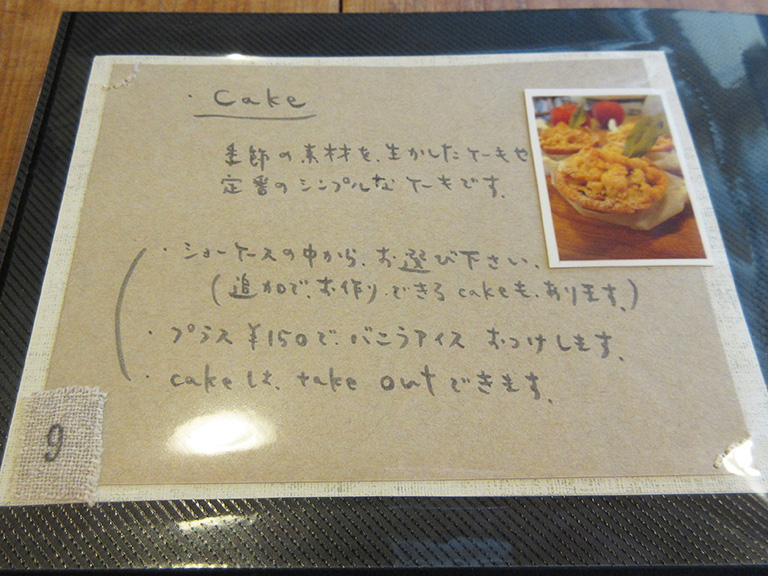 ・Cake
季節の素材を、生かしたケーキや
定番のシンプルなケーキです。
・ショーケースの中から、お選び下さい、
(追加で、お作りできるcakeも、あります。)
・プラス¥150で、バニラアイスおつけします。
・cakeは、take outできます。
9